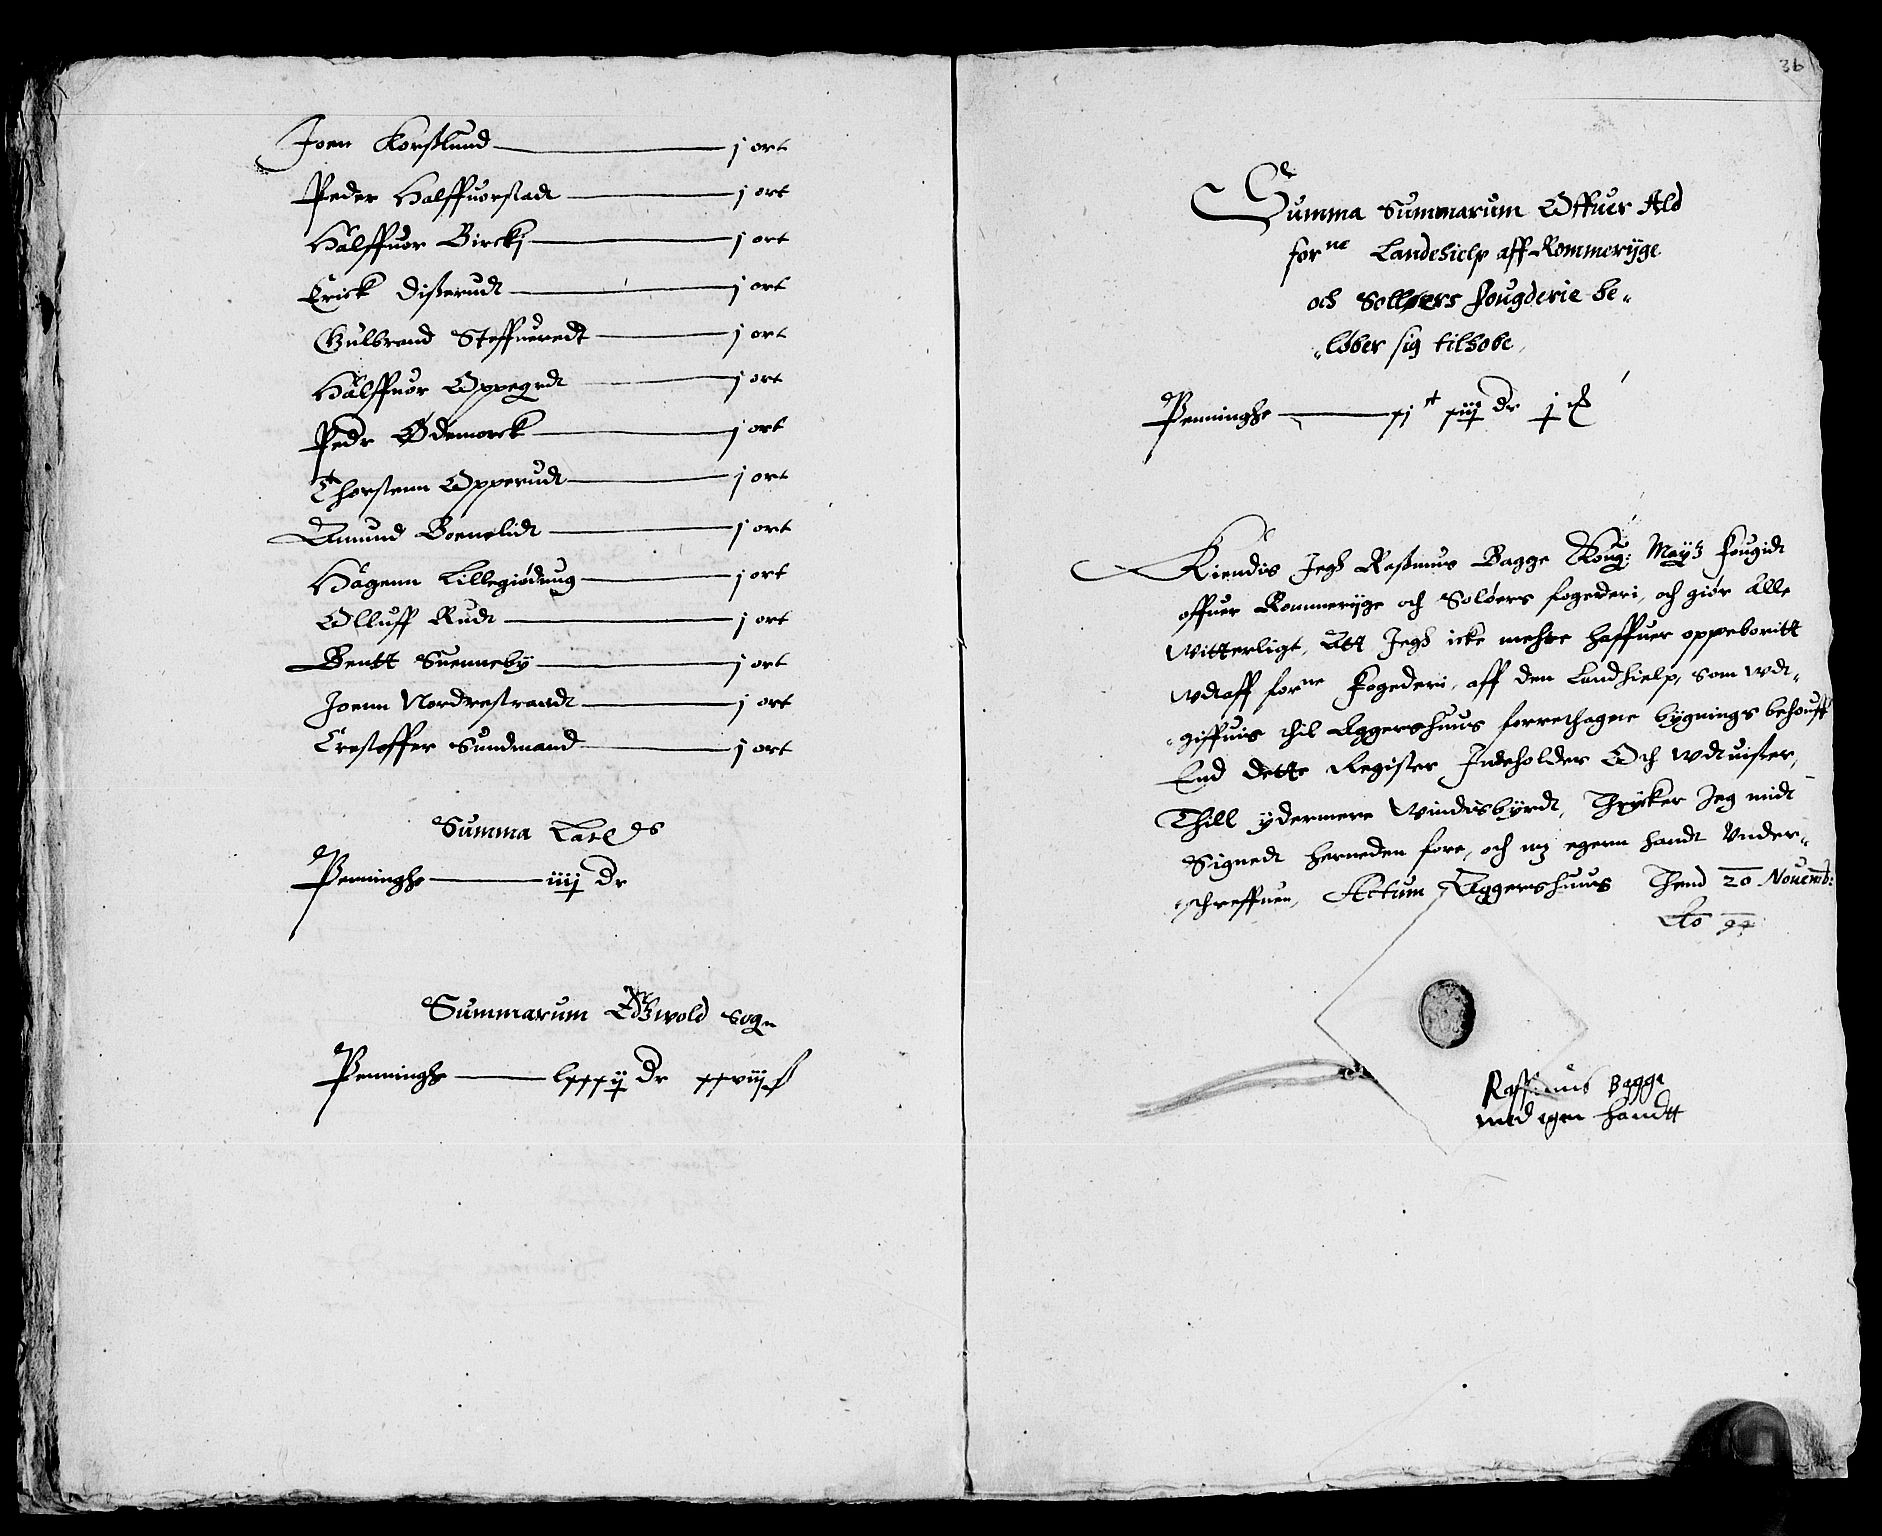 Joen Korsslund — j ort
Peder Halffuorstadt — j ort
Halffuor Bircky — j ort
Erick Disserudt — j ort
Gulbrand Steffueredt — j ort
Halffuor Oppegrdt — j ort
Pedr Ødemorck — j ort
Thorstenn Opperudt — j ort
Amund Boenelidt — j ort
Hagenn Lillegiødnng — j ort
Olluff Rudt — j ort
Bentt Suenneby — j ort
Joenn Nordrestrandt — j ort
Crestoffer Sundmand — j ort
Summa
Penninghe — iiij Dr
Summarum wold Sogn
Penninghe — lxxxij Dr xxviij ß
36
Summa Summarum Offuer Ald
forne Landehielp aff Rommeryge
och Solløers fougderie be-
-løber sig tilhobe
Penninghe — xjt xiij Dr j
Kiendis Jegh Rasmus Bagge Kong: Maytz fougidt
offuer Rommeryge och Soløers fogederi, och giør alle
witterligt, Att Jegh icke mehre haffuer oppeboritt
wdtaff forne fogederi, aff den Landhielp, som wdt-
giffuis thil Aggershuus forrethagne bygnings behouff
End dette Register Indeholder Och wdtuiser,
Thill ydermere Windisbyrdt, Thrycker Jeg midt
Signedt herneden fore, och my egenn handt Vnder-
schreffuen, Actum Aggershuus Thend 20 Nouemb:
Ao 97
Rassmus Bagge
med egen handtt